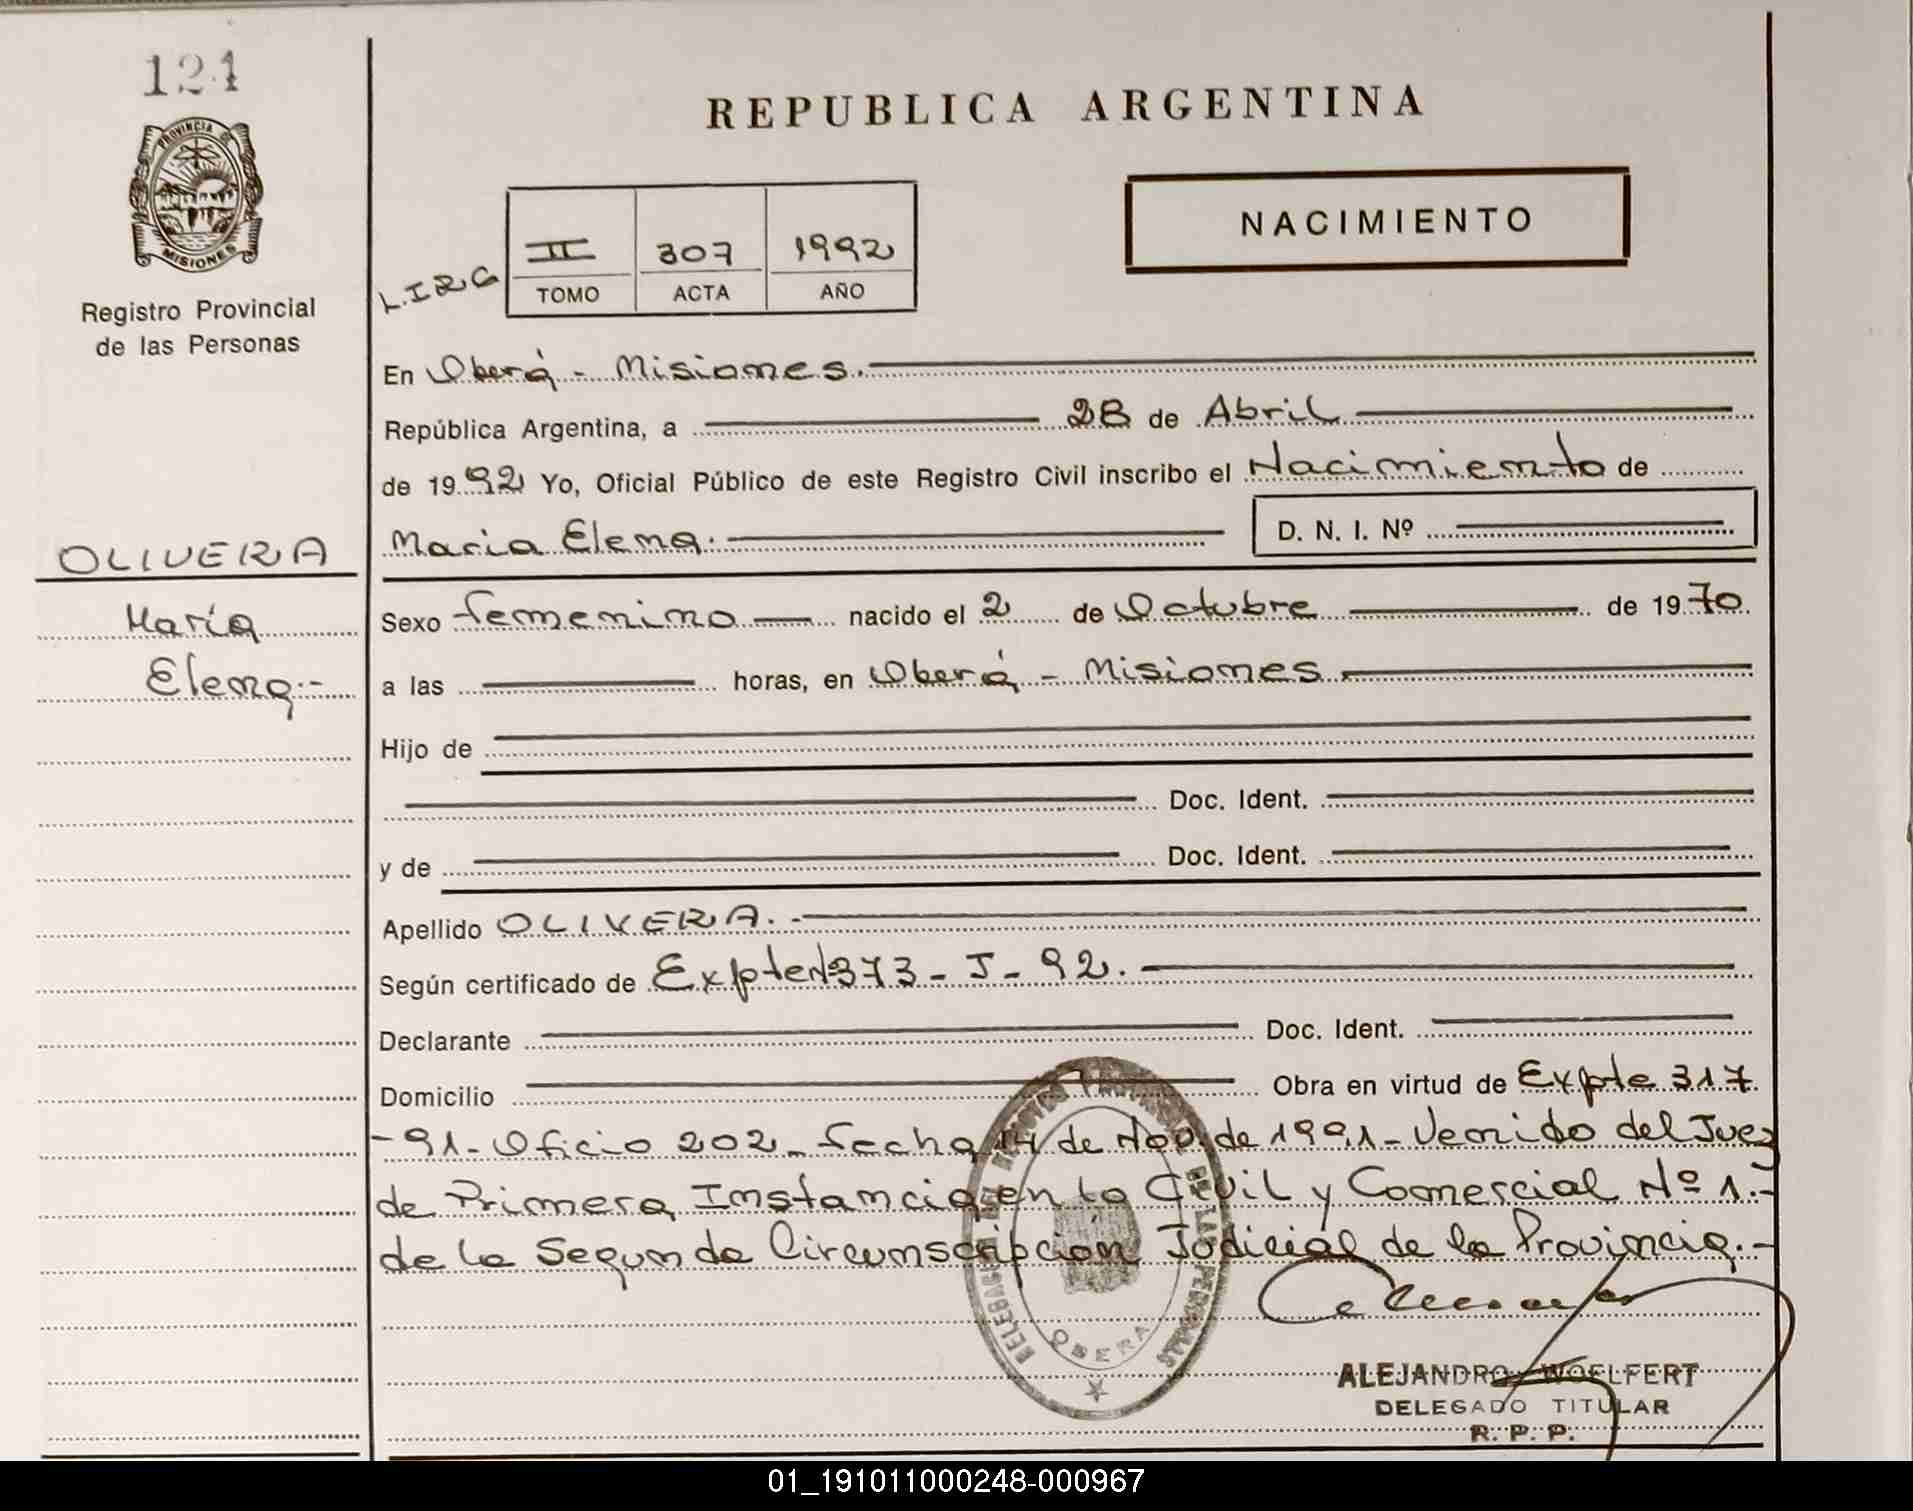 124
PROVINCIA DE
MISIONES
Registro Provincial
de las Personas
OLIVERA
María
Elena.-
REPUBLICA ARGENTINA
NACIMIENTO
II 307 1992
TOMO ACTA AÑO
En Oberá - Misiones.
República Argentina, a 28 de Abril
de 1992 Yo, Oficial Público de este Registro Civil inscribo el Nacimiento de
Maria Elena. D. N. I. Nº
Sexo femenino nacido el 2 de Octubre de 1970.
a las horas, en Oberá - Misiones
Hijo de
Doc. Ident.
y de Doc. Ident.
Apellido OLIVERA.-
Según certificado de Expte Nº 373-J-92.
Declarante Doc. Ident.
Domicilio Obra en virtud de Expte 317
-91-Oficio 202- fecha 14 de Nov. de 1991- Venido del Juez
de Primera Instancia en lo Civil y Comercial Nº 1.-
de la Segunda Circunscripción Judicial de la Provincia.-
OBERA
ALEJANDRO WOELFERT
DELEGADO TITULAR
R. P. P.
01_191011000248-000967